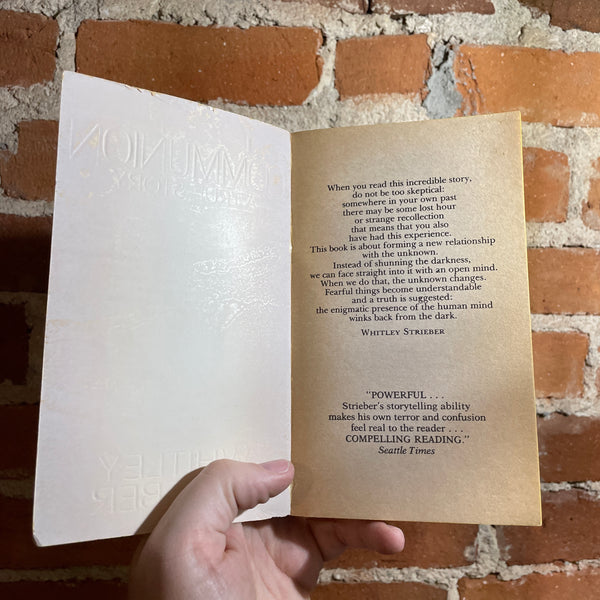 OMMUNION
STORY
WHITLEY
BER
When you read this incredible story,
do not be too skeptical:
somewhere in your own past
there may be some lost hour
or strange recollection
that means that you also
have had this experience.
This book is about forming a new relationship
with the unknown.
Instead of shunning the darkness,
we can face straight into it with an open mind.
When we do that, the unknown changes.
Fearful things become understandable
and a truth is suggested:
the enigmatic presence of the human mind
winks back from the dark.
WHITLEY STRIEBER
"POWERFUL . . .
Strieber's storytelling ability
makes his own terror and confusion
feel real to the reader . . .
COMPELLING READING."
Seattle Times